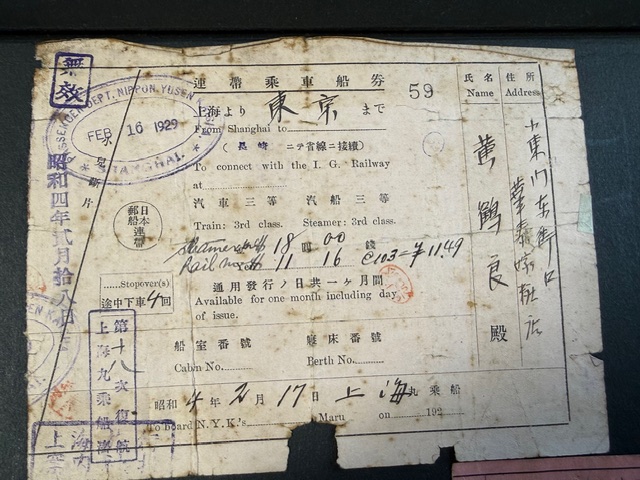 無效
連帶乘車船券
59
氏名
Name
住所
Address
PASSENGER DEPT. NIPPON YUSEN
FEB 16 1929
SHANGHAI.
上海より 東京 まで
From Shanghai to
(長崎ニテ省線ニ接續)
To connect with the I. G. Railway
at
汽車三等 汽船三等
Train: 3rd class. Steamer: 3rd class.
日本郵船連帶
18 00
11 16 @103=¥11.49
Stopover(s)
途中下車4回
通用發行ノ日共一ヶ月間
Available for one month including day
of issue.
船室番號 寢床番號
Cabin No. Berth No.
昭和4年2月17日 上海丸乘船
to board N.Y.K.'s Maru on 192
黃鶴良殿
昭和四年貳月拾八日
第十八次復航
上海丸乘船